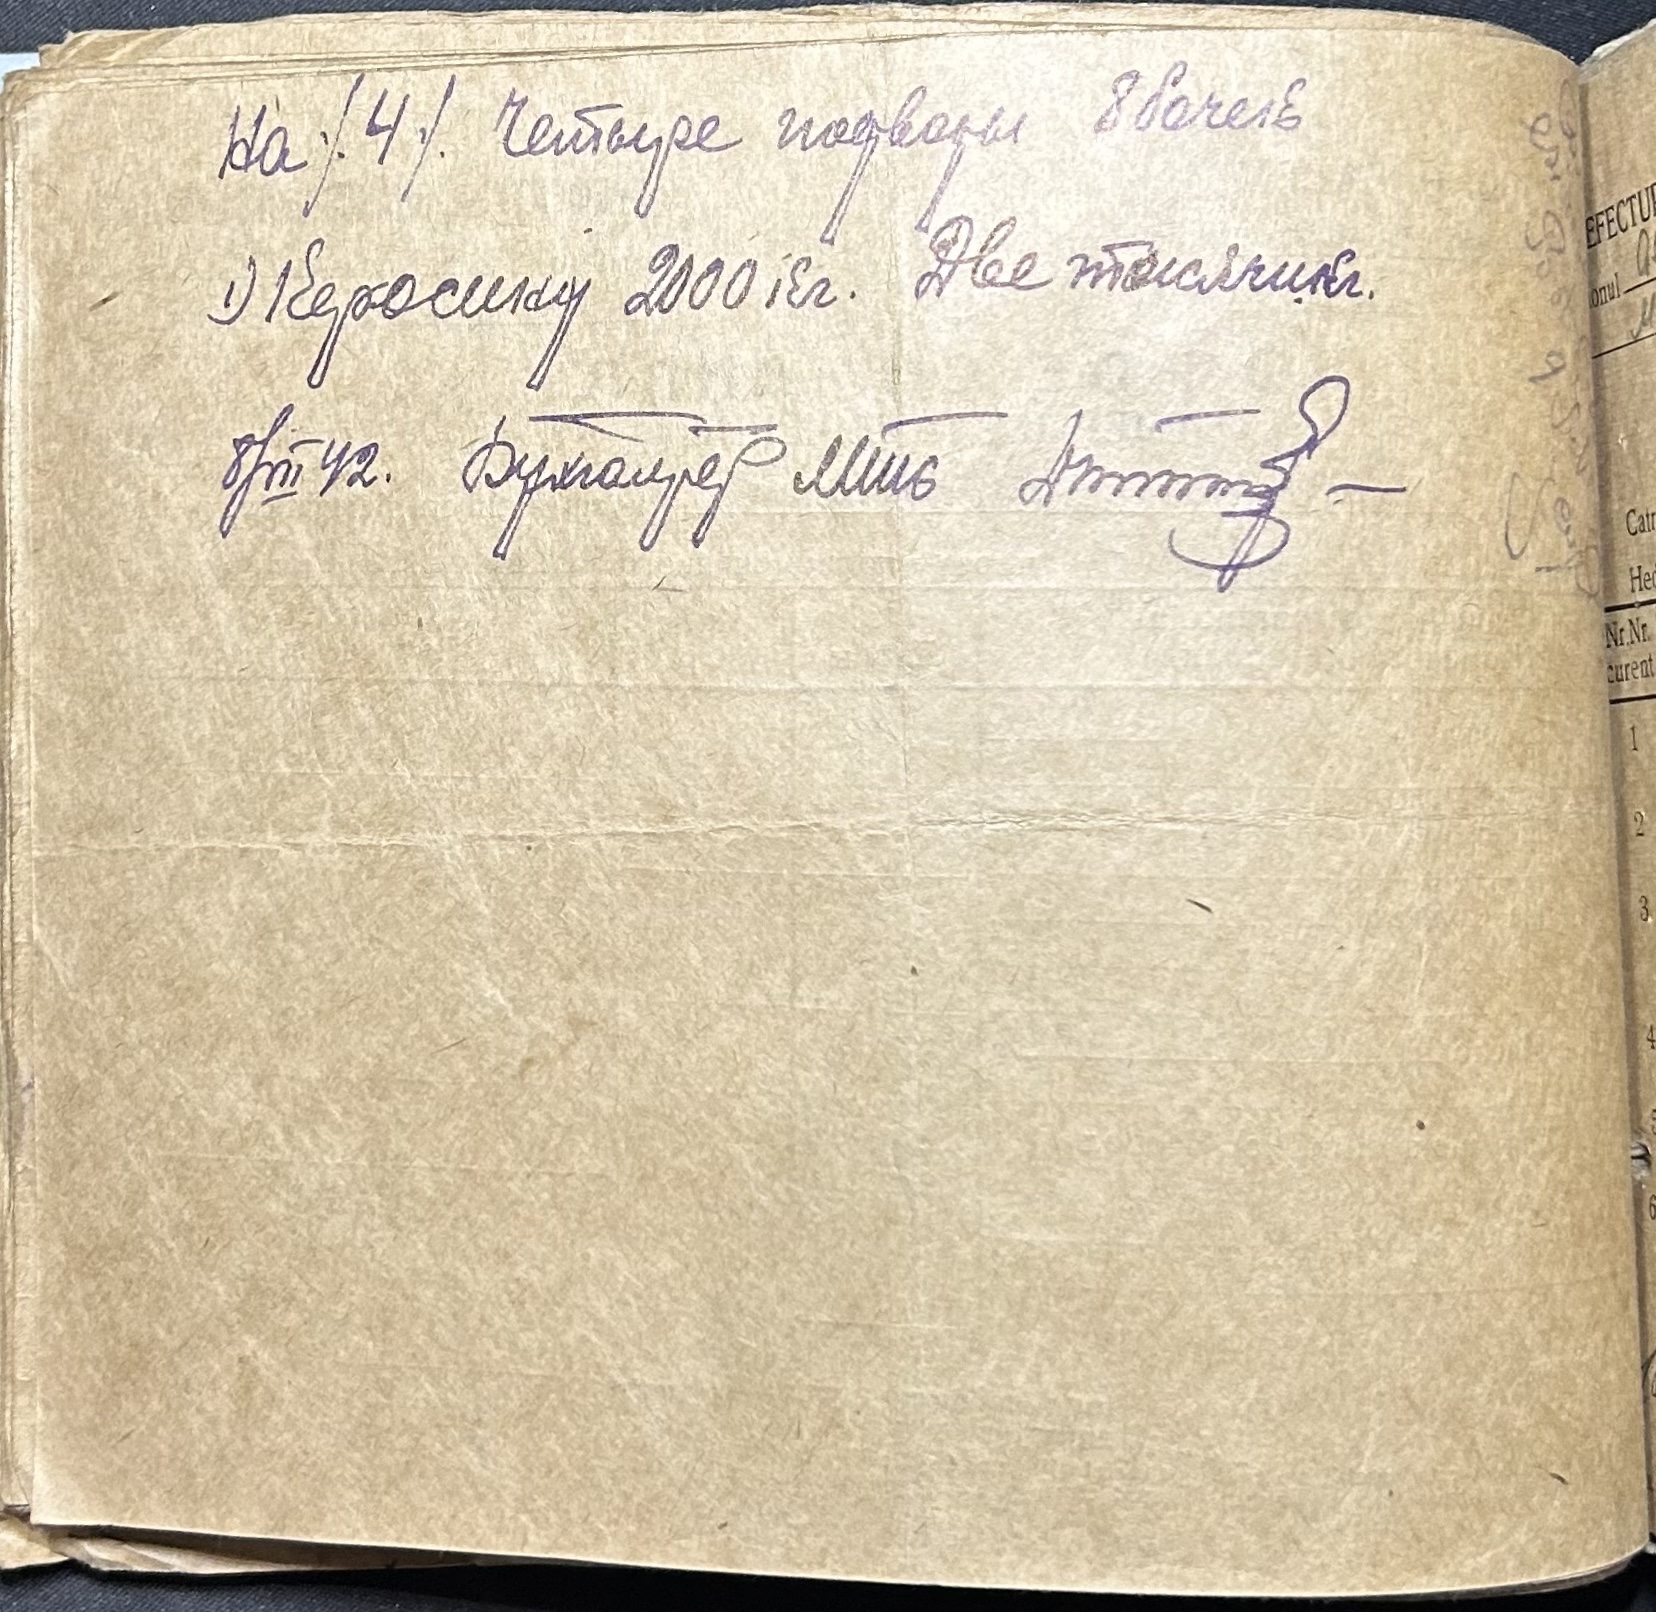 На /4/. Четыре подводы 8 бочек
1) Керосину 2000 кг. Две тысячи кг.
8/III 42. Бухгалтер МТС
EFECTUR
onul
Catr
Hec
Nr.Nr.
curent
1
2
3
4
5
6